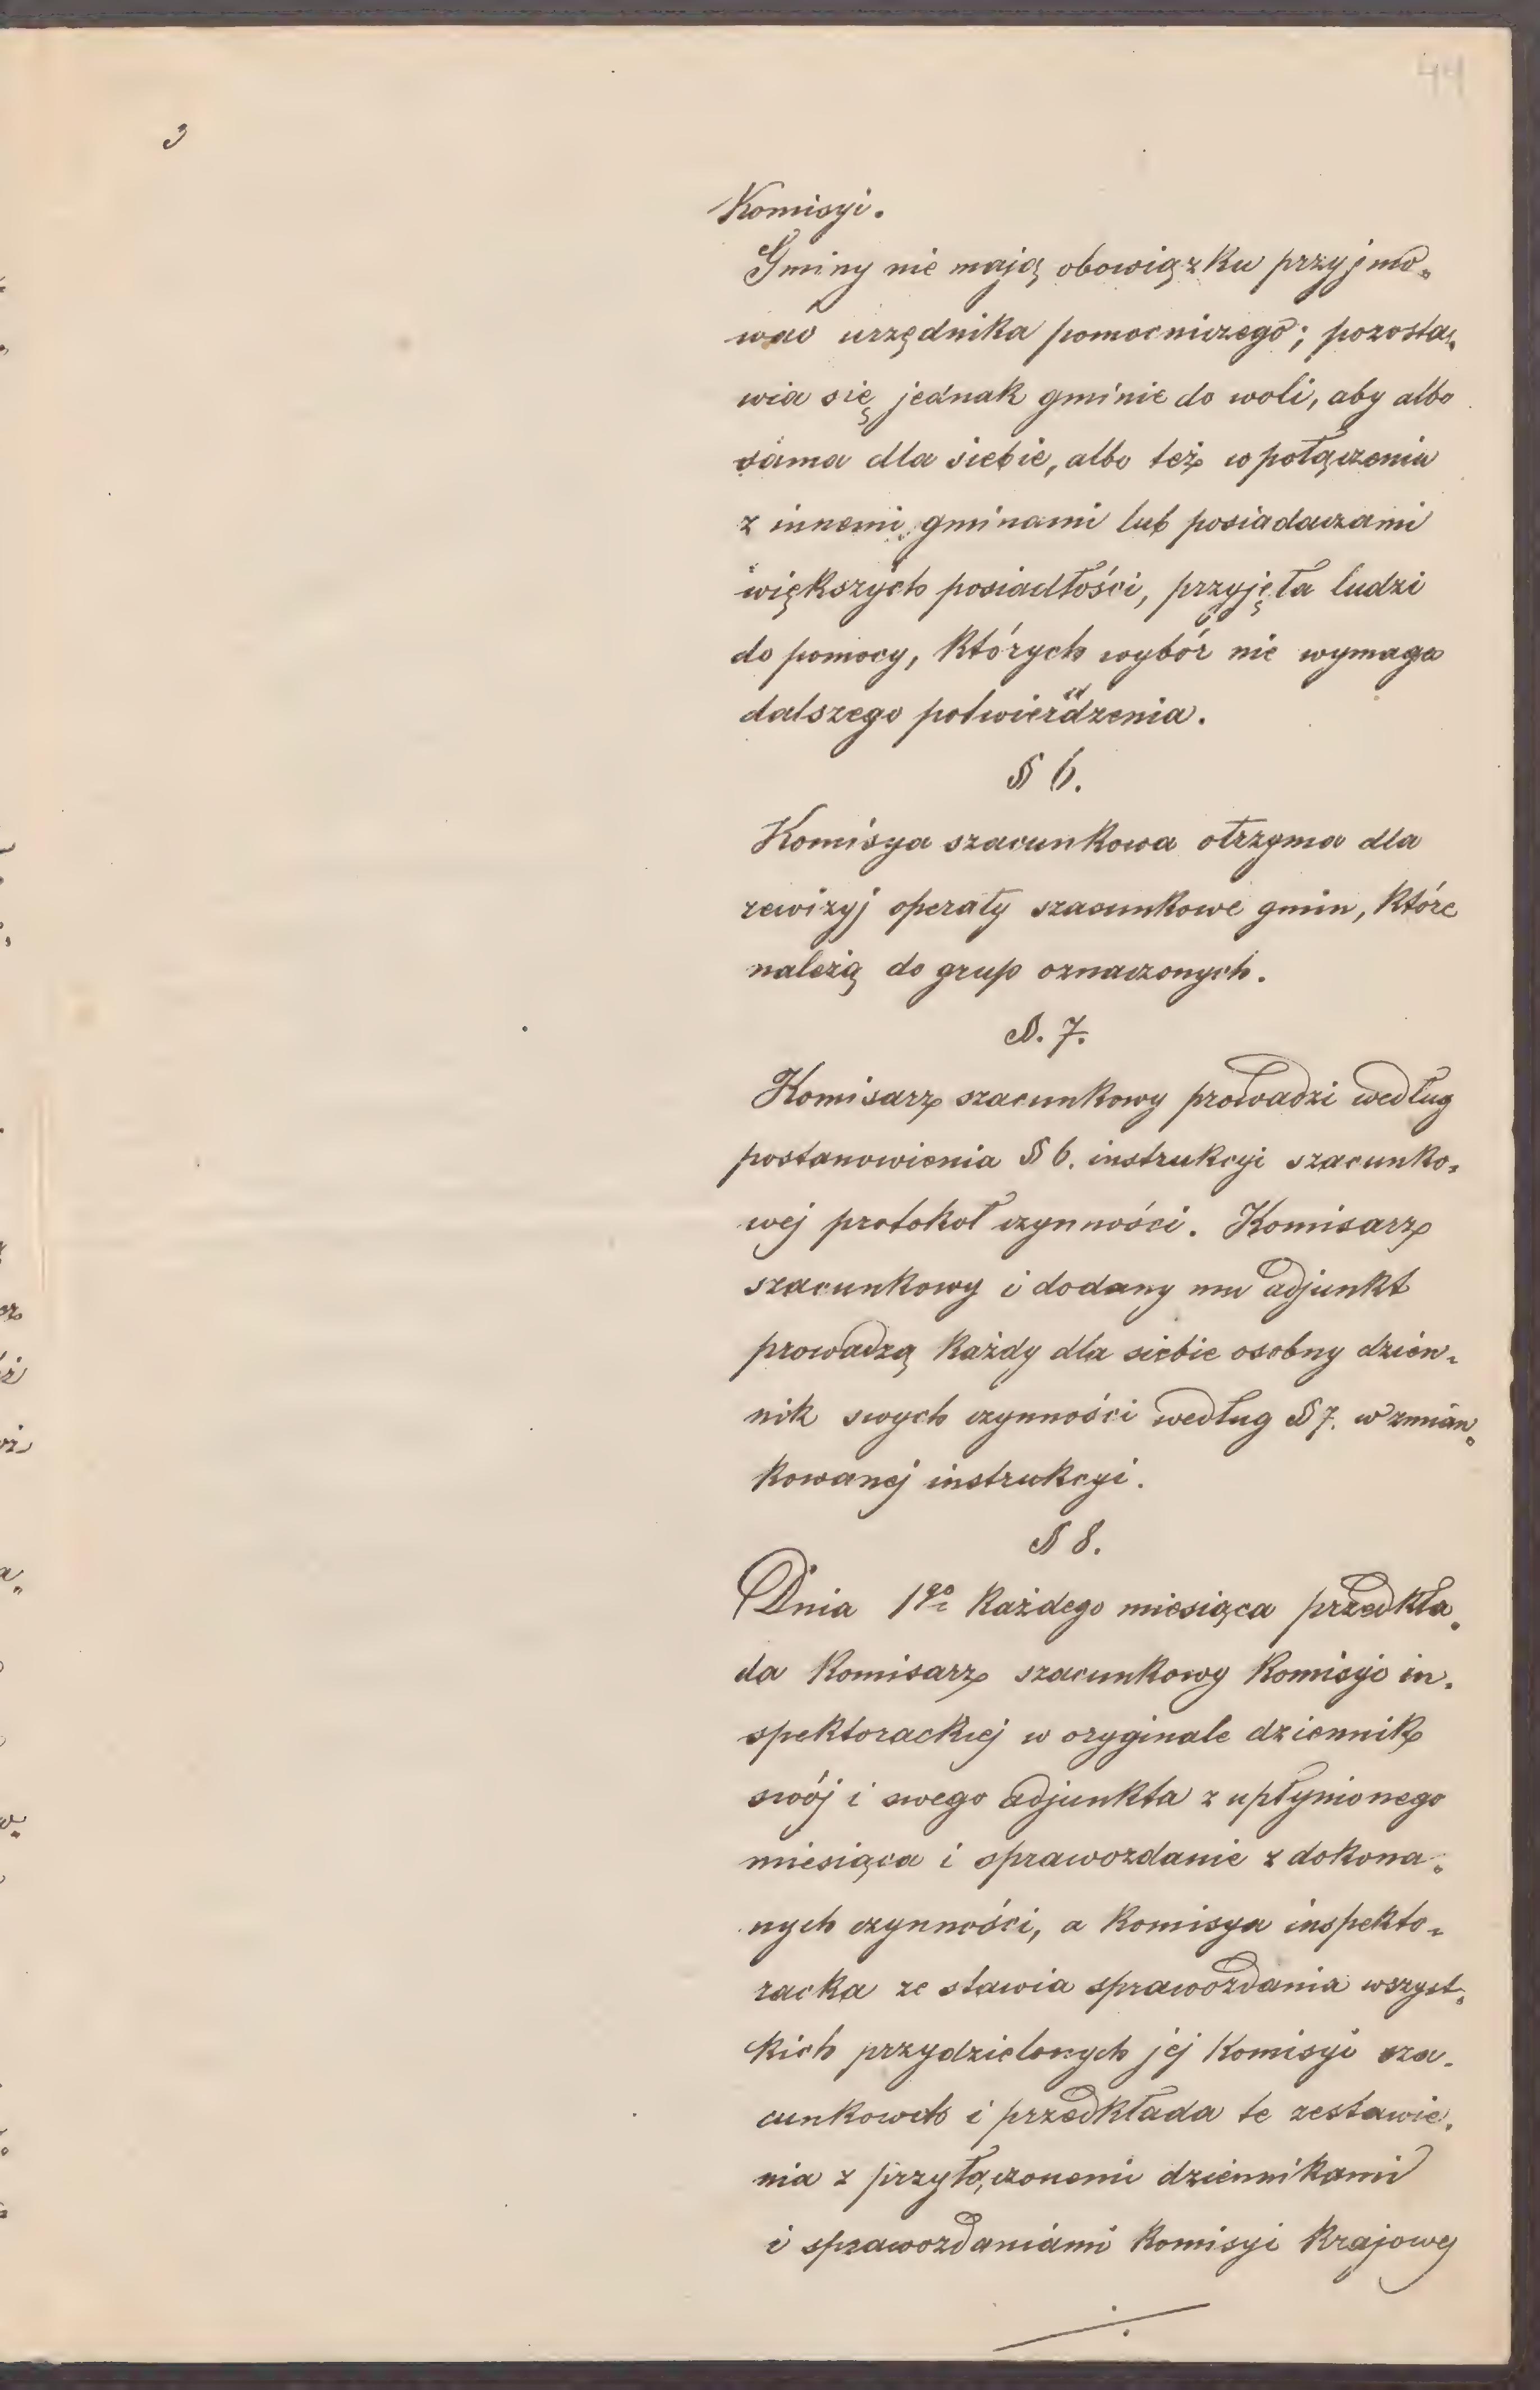 44
3
Komisyi.
Gminy nie mają obowiązku przyjmo„
wać urzędnika pomocniczego; pozosta„
wia się jednak gminie do woli, aby albo
sama dla siebie, albo też w połączeniu
z innemi gminami lub posiadaczami
większych posiadłości, przyjęła ludzi
do pomocy, których wybór nie wymaga
dalszego potwierdzenia.
§ 6.
Komisya szacunkowa otrzyma dla
rewizyj operaty szacunkowe gmin, które
należą do grup oznaczonych.
§. 7.
Komisarz szacunkowy prowadzi według
postanowienia § 6. instrukcyi szacunko„
wej protokoł czynności. Komisarz
szacunkowy i dodany mu adjunkt
prowadzą każdy dla siebie osobny dzien„
nik swych czynności według § 7. wzmian„
kowanej instrukcyi.
§ 8.
Dnia 1go każdego miesiąca przedkła„
da Komisarz szacunkowy Komisyi in„
spektorackiej w oryginale dziennik
swój i swego adjunkta z upłynionego
miesiąca i sprawozdanie z dokona„
nych czynności, a Komisya inspekto„
racka ze stawia sprawozdania wszyst„
kich przydzielonych jej Komisyi sza„
cunkowch i przedkłada te zestawie„
nia z przyłączonemi dziennikami
i sprawozdaniami Komisyi Krajowej